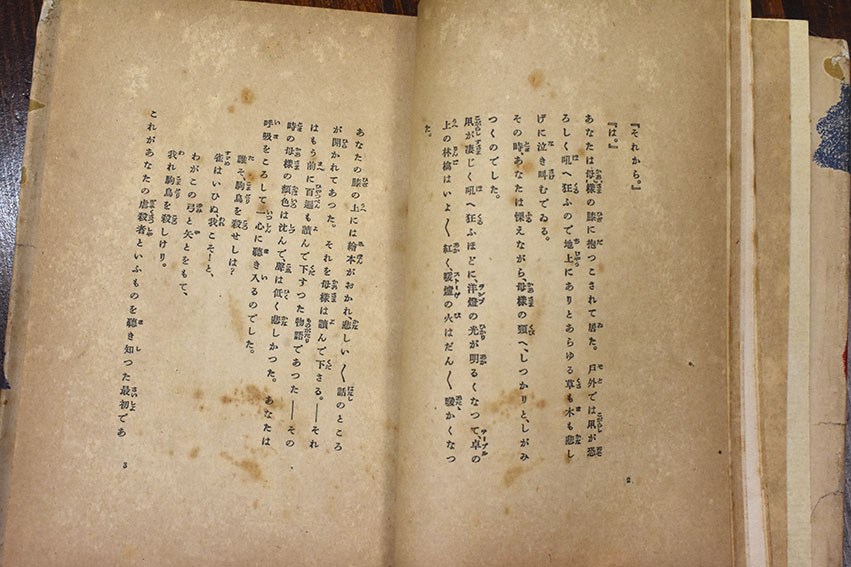 『それから。』
『は。』
あなたは母様の膝に抱つこされて居た。戸外では凩が恐
ろしく吼へ狂ふので地上にありとあらゆる草も木も悲し
げに泣き叫むでゐる。
その時あなたは慄えながら、母様の頸へ、しつかりと、しがみ
つくのでした。
凩が凄じく吼へ狂ふほどに、洋燈の光が明るくなつて、卓の
上の林檎はいよ〳〵紅く暖燈の火はだん〳〵暖かくなつ
た。
2
あなたの膝の上には繪本がおかれ悲しい〳〵話のところ
が開かれてあつた。それを母様は讀んで下さる。——それ
はもう前に百遍も讀んで下すつた物語であつた——その
時の母様の顏色は沈んで、聲は低く悲しかつた。あなたは
呼吸をころして一心に聽き入るのでした。
誰そ、駒鳥を殺せしは?
雀はいひぬ、我こそ!と、
わがこの弓と矢とをもて、
我れ駒鳥を殺しけり。
これがあなたの虐殺者といふものを聽き知つた最初であ
3